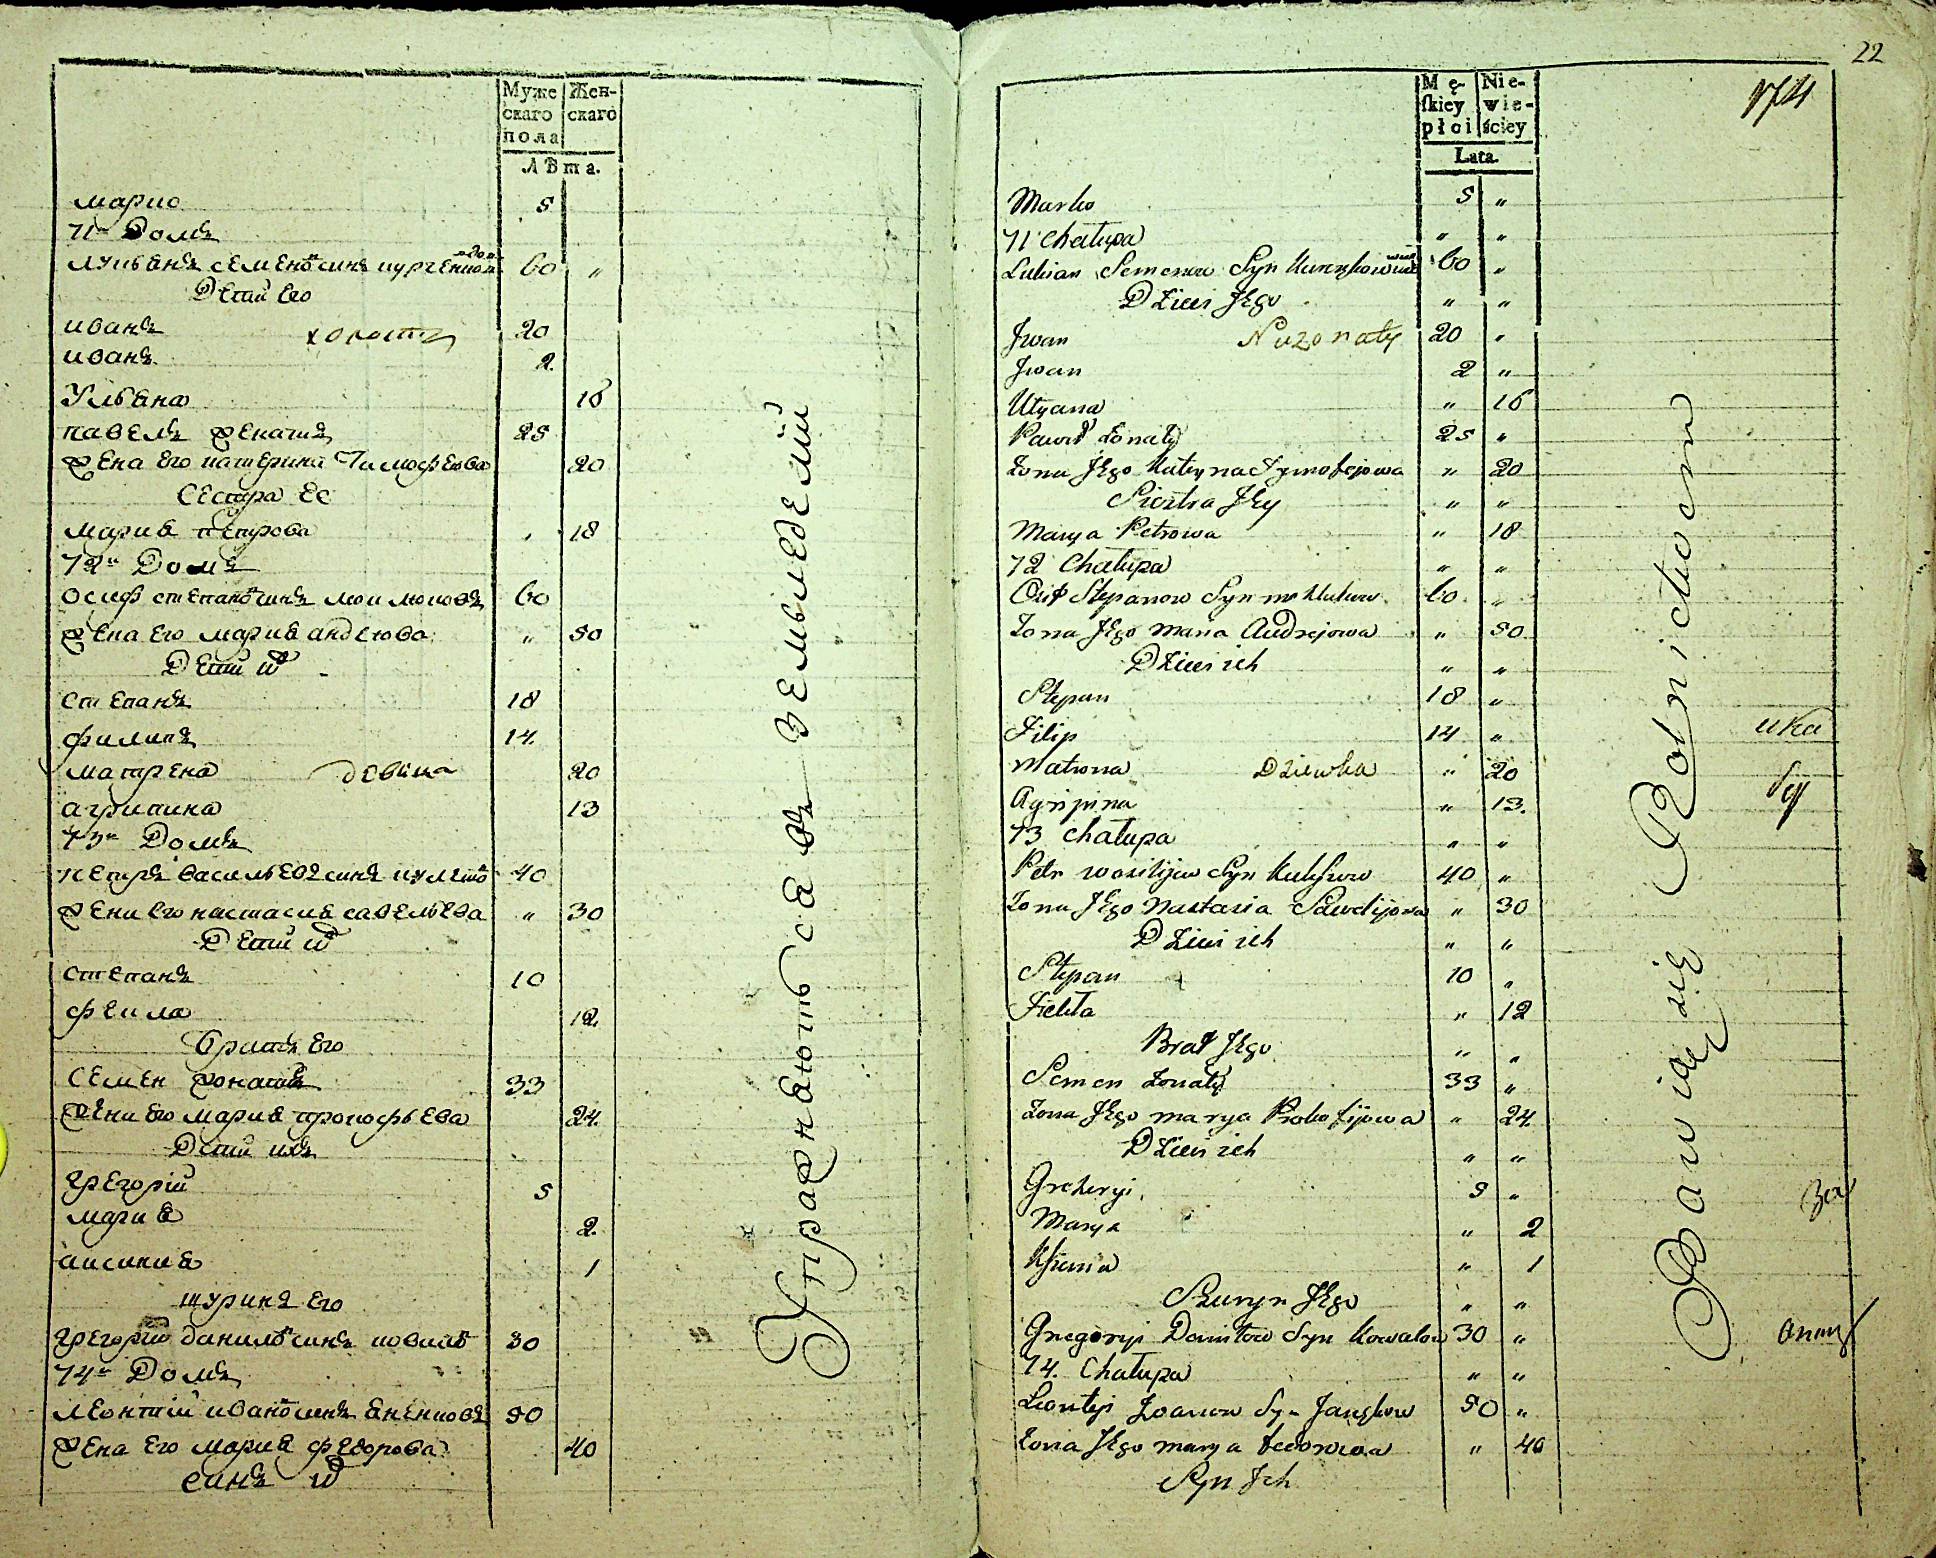 Муже Жен-
скаго скаго
пола
Лѣта.
Марко 5
71й Домъ
Лукьянъ Семеновъ синъ 60 "
Дети его
иванъ холостъ 20
иванъ 2
Ульяна 16
павелъ женатъ 25
жена его катерина Тимофеева 20
Сестра ее
Мария петрова 18
72й Домъ
осиф степановъ синъ 60
жена его мария андеюва " 50
Дети их
степанъ 18
филипъ 14
матрена девка 20
агрипина 13
73й Домъ
петръ васильевъ синъ 40
жена его настасия савельева " 30
Дети их
степанъ 10
фекла 12
братъ его
семен жонатъ 33
жена его мария прокофьева 24
Дети ихъ
григорий 5
мария 2
аксиния 1
шуринъ его
григорий даниловъ синъ ковалев 30
74й Домъ
леонтий ивановъ синъ 50
жена его мария федорова 40
синъ их
Упражняются въ земледелии
22
Mę- Nie-
skiey wie-
płci ściey
Lata.
Marko 5 "
71 Chałupa " "
Lukian Semenow Syn 60 "
Dzieci Jego " "
Jwan Nieżonaty 20 "
Jwan 2 "
Ulyana " 16
Paweł żonaty 25 "
Żona Jego Kateryna Tymofejowa " 20
Siostra Jey " "
Marya Petrowa " 18
72 Chałupa " "
Osif Stepanow Syn 60 "
Żona Jego Maria Andrejowa " 50
Dzieci ich " "
Stepan 18 "
Filip 14 "
Matrona Dziewka " 20
Agripina " 13
73 Chałupa " "
Petr Wasilijew Syn 40 "
Żona Jego Nastazia Sawelijowa " 30
Dzieci ich " "
Stepan 10 "
Fiekła " 12
Brat Jego " "
Semen żonaty 33 "
Żona Jego Marya Prokofijowa " 24
Dzieci ich " "
Grehoryi 5 "
Marya " 2
Ksienia " 1
Szuryn Jego " "
Gregoryi Daniłow Syn Kowalow 30 "
74. Chałupa " "
Leontyi Iwanow Syn 50 "
Żona Jego Marya Fedorowa " 40
Syn Jch
Bawią się Rolnictwem